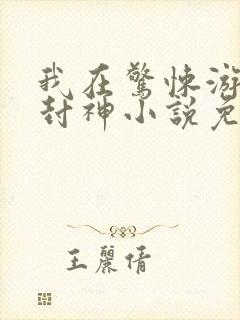 我在驚悚游
封神小說免
王麗倩